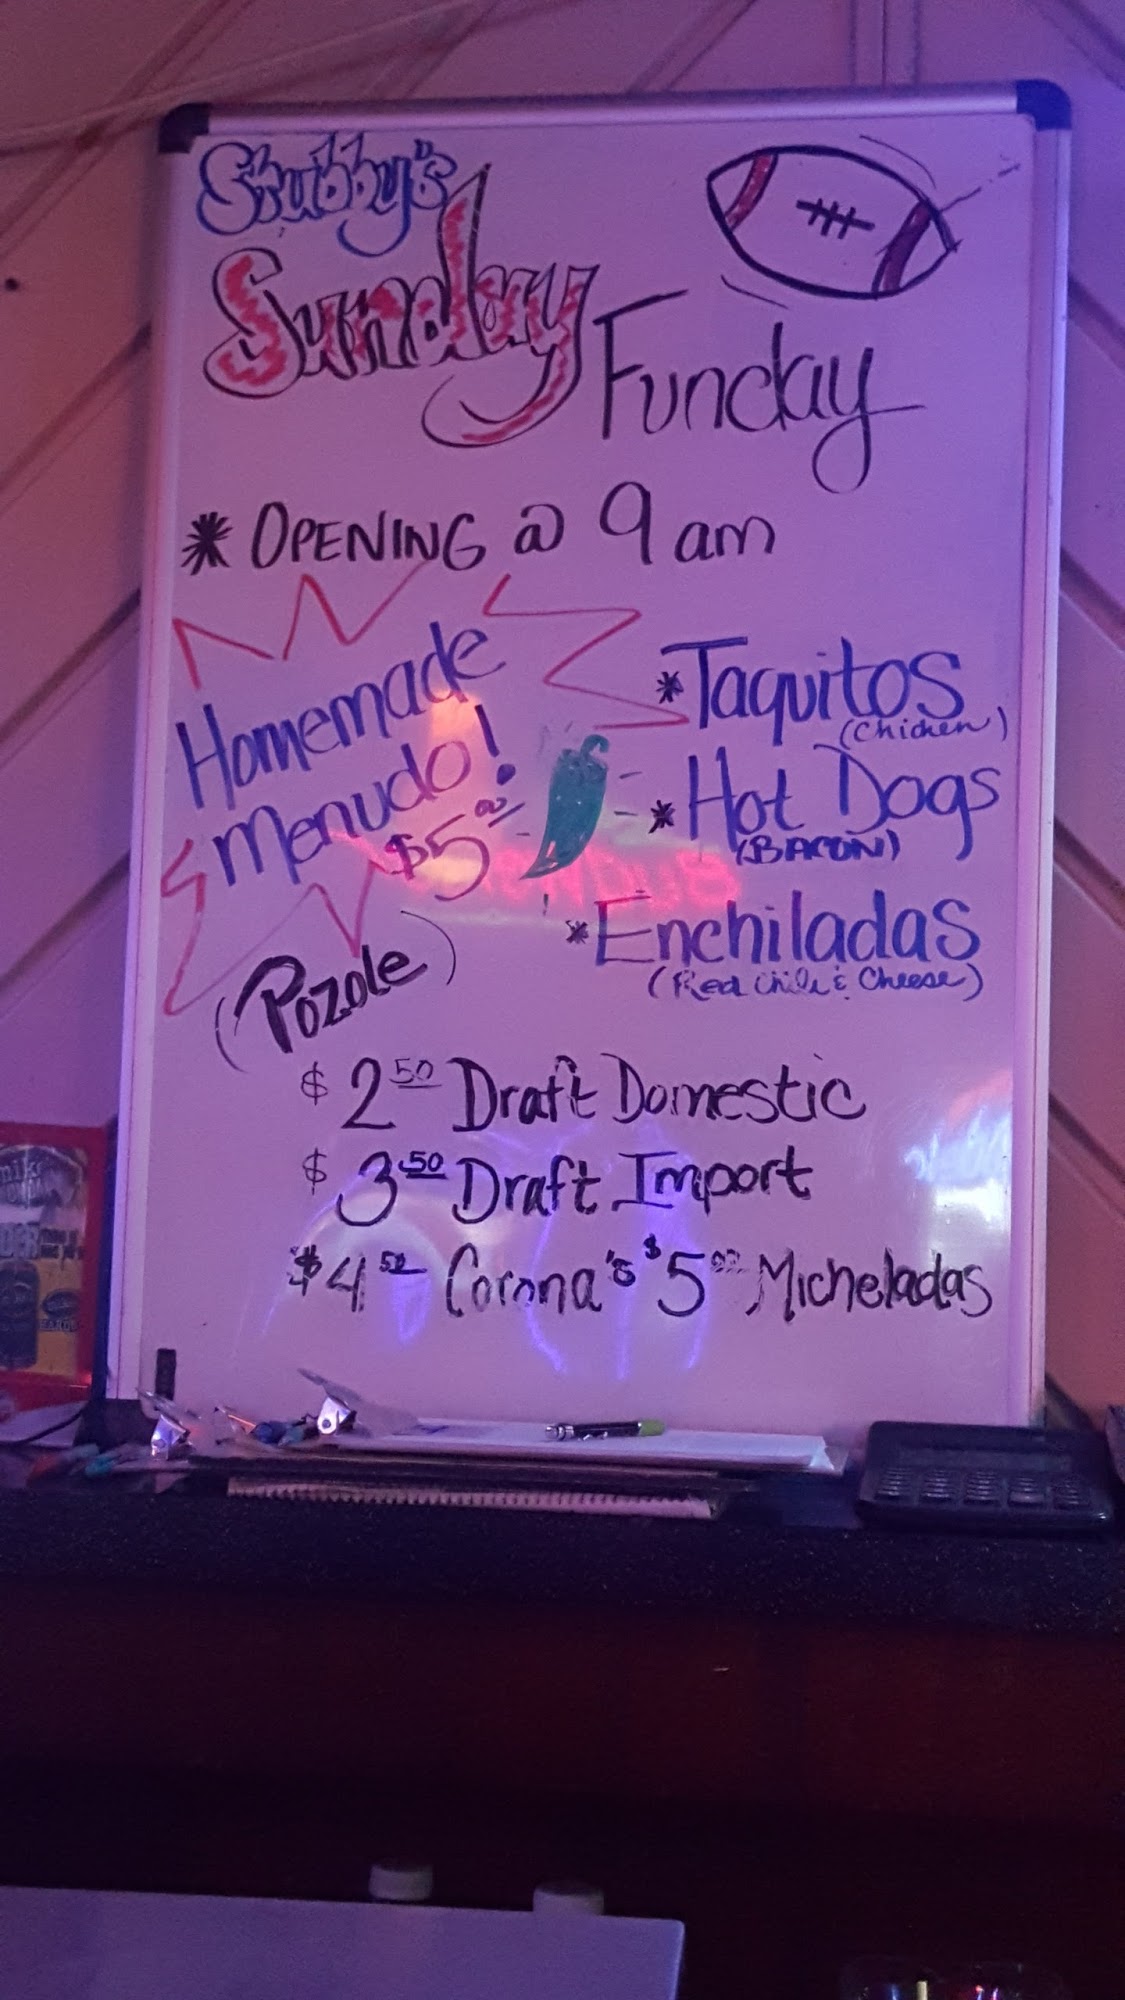 Stubby's
Sunday
Funday
* OPENING @ 9 am
Homemade
Menudo!
$5.00
(Pozole)
* Taquitos
(Chicken)
* Hot Dogs
(BACON)
* Enchiladas
(Red Chile & Cheese)
$ 2.50 Draft Domestic
$ 3.50 Draft Import
$4.50 Corona's $5.00 Micheladas